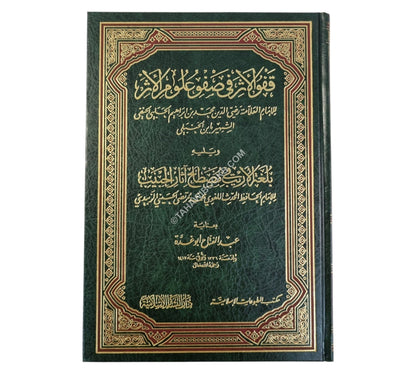 قفو الأثر في صفو علوم الأثر
للإمام العلامة رضي الدين محمد بن إبراهيم الحلبي الحنفي
الشهير بابن الحنبلي
ويليه
بلغة الأريب في مصطلح آثار الحبيب
للإمام الحافظ المحدث اللغوي محمد مرتضى الحسيني الزبيدي
بعناية
عبد الفتاح أبو غدة
ولد سنة ١٣٣٦ وتوفي سنة ١٤١٧
رحمه الله تعالى
مكتب المطبوعات الإسلامية
دار البشائر الإسلامية